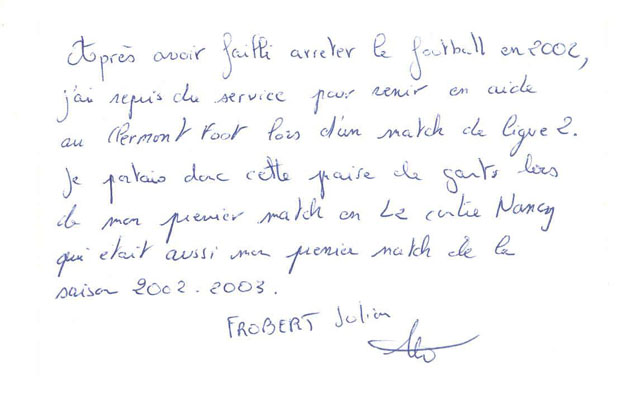 Après avoir failli arreter le football en 2002,
j'ai repris du service pour venir en aide
au Clermont Foot lors d'un match de ligue 2.
Je portais donc cette paire de gants lors
de mon premier match en L2 contre Nancy
qui était aussi mon premier match de la
saison 2002-2003.
FROBERT Julien